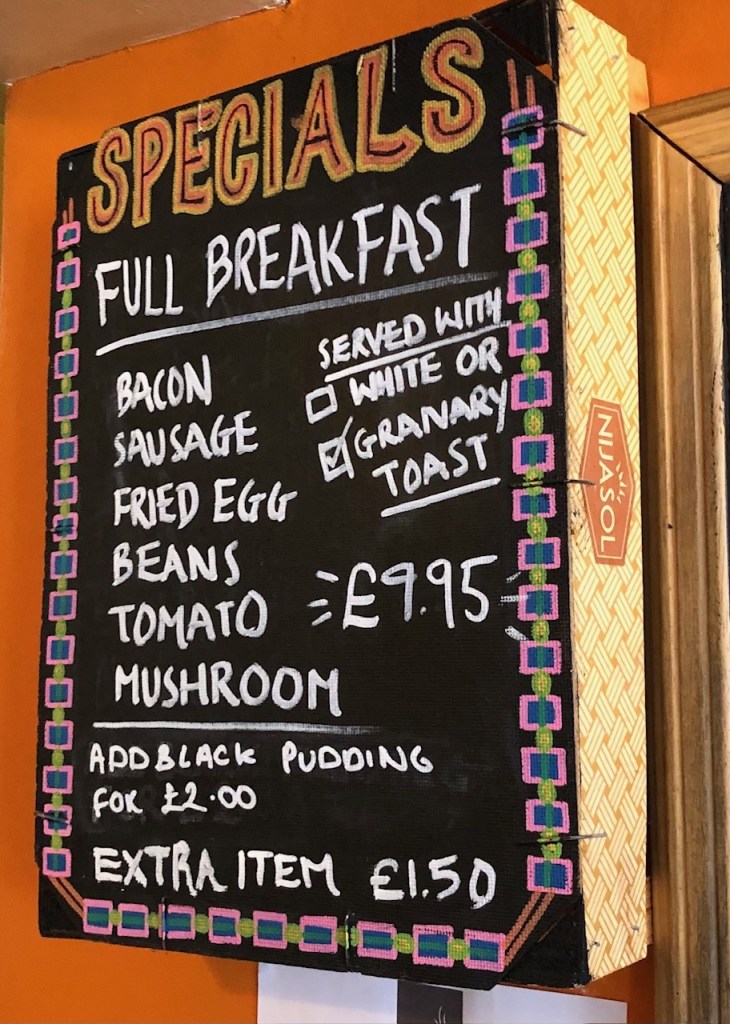 SPECIALS
FULL BREAKFAST
BACON
SAUSAGE
FRIED EGG
BEANS
TOMATO
MUSHROOM
SERVED WITH
WHITE OR
GRANARY
TOAST
£9.95
ADD BLACK PUDDING
FOR £2.00
EXTRA ITEM £1.50
NIJASOL